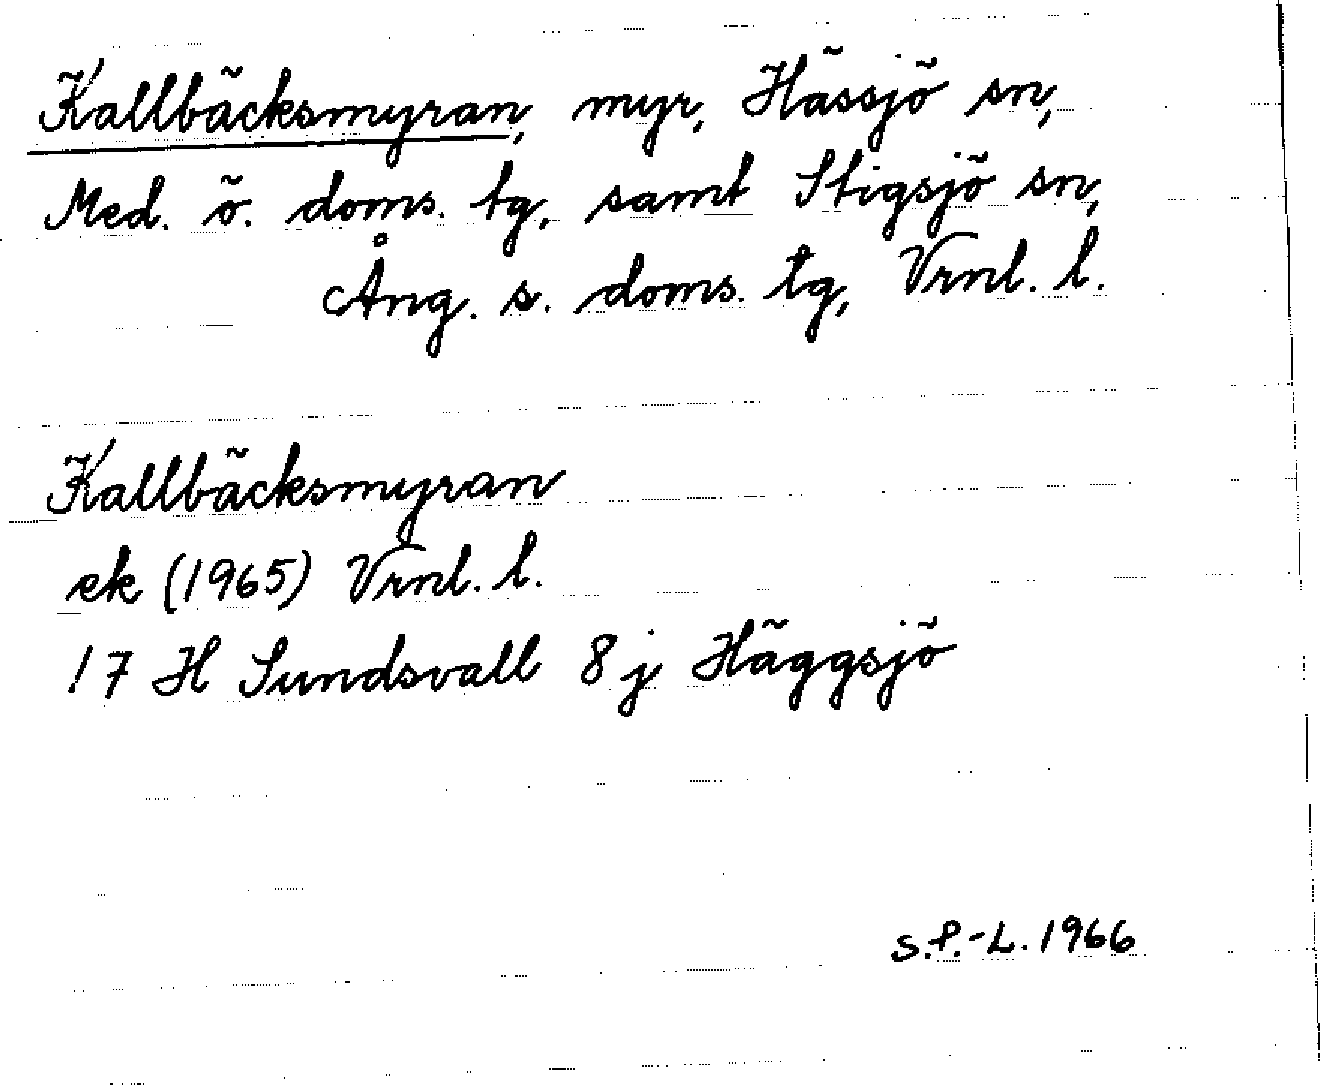 Kallbäcksmyran, myr, Hässjö sn,
Med. ö. doms. tg, samt Stigsjö sn,
Ång. s. doms. tg, Vrnl. l.
Kallbäcksmyran
ek (1965) Vrnl. l.
17 H Sundsvall 8 j Häggsjö
S.P.-L. 1966